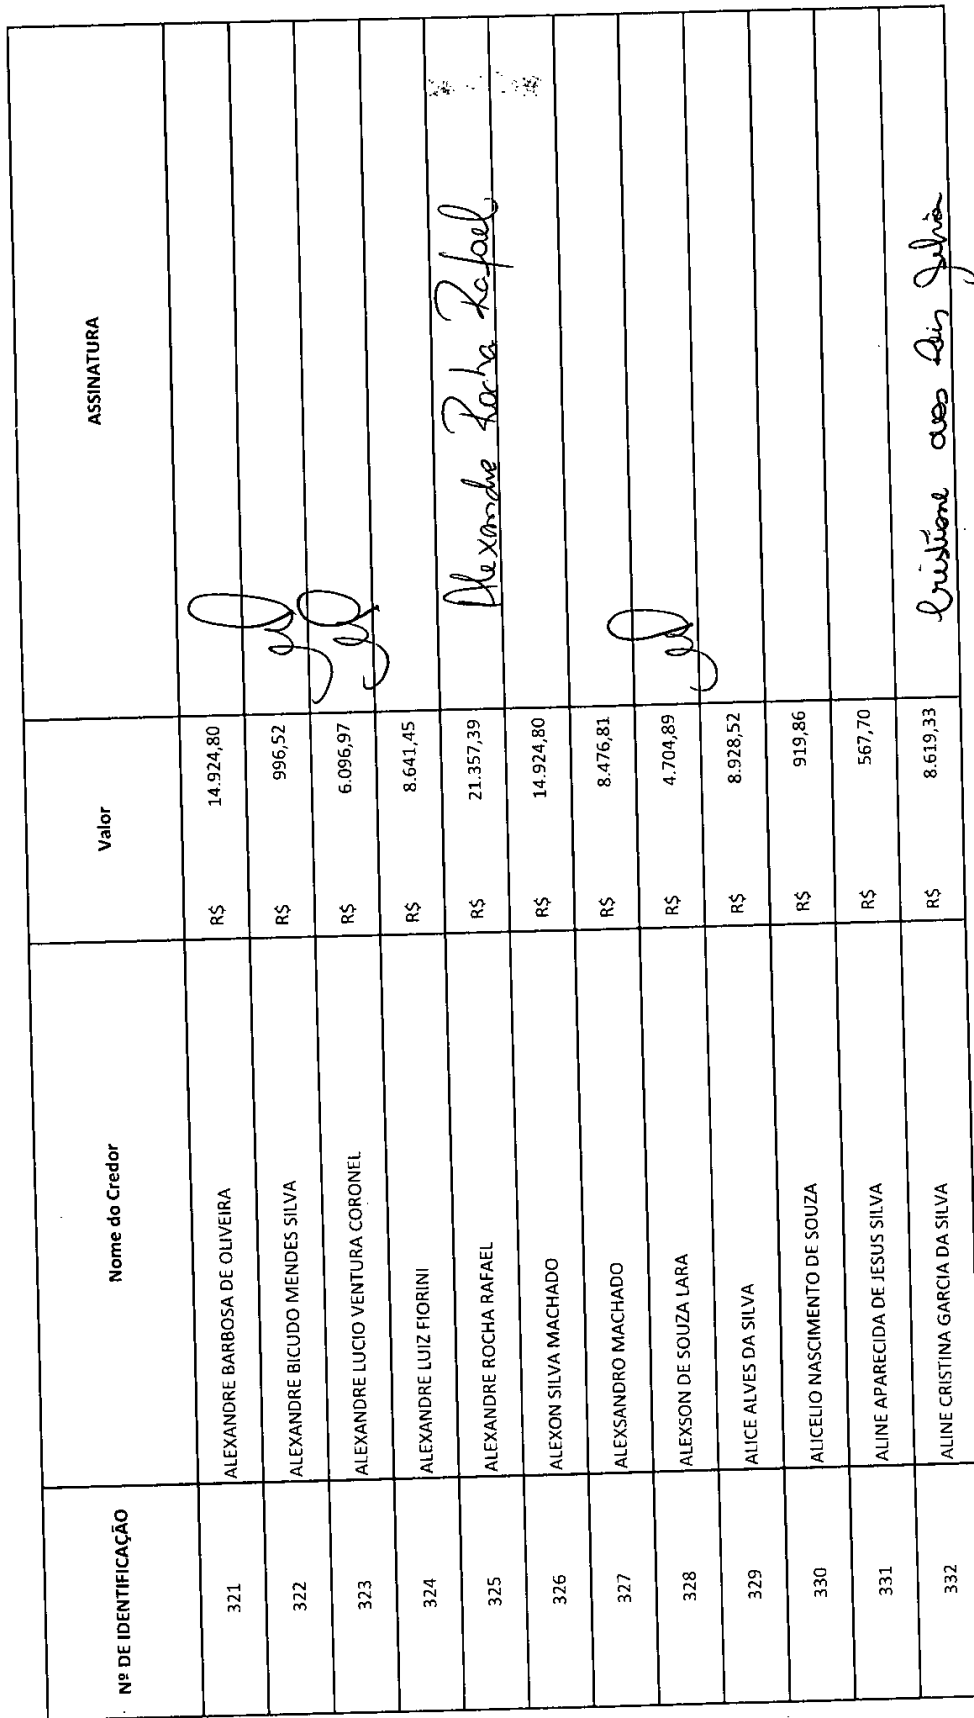 Nº DE IDENTIFICAÇÃO Nome do Credor Valor ASSINATURA
321 ALEXANDRE BARBOSA DE OLIVEIRA R$ 14.924,80
322 ALEXANDRE BICUDO MENDES SILVA R$ 996,52
323 ALEXANDRE LUCIO VENTURA CORONEL R$ 6.096,97
324 ALEXANDRE LUIZ FIORINI R$ 8.641,45
325 ALEXANDRE ROCHA RAFAEL R$ 21.357,39 Alexandre Rocha Rafael
326 ALEXON SILVA MACHADO R$ 14.924,80
327 ALEXSANDRO MACHADO R$ 8.476,81
328 ALEXSON DE SOUZA LARA R$ 4.704,89
329 ALICE ALVES DA SILVA R$ 8.928,52
330 ALICELIO NASCIMENTO DE SOUZA R$ 919,86
331 ALINE APARECIDA DE JESUS SILVA R$ 567,70
332 ALINE CRISTINA GARCIA DA SILVA R$ 8.619,33 Cristiane dos